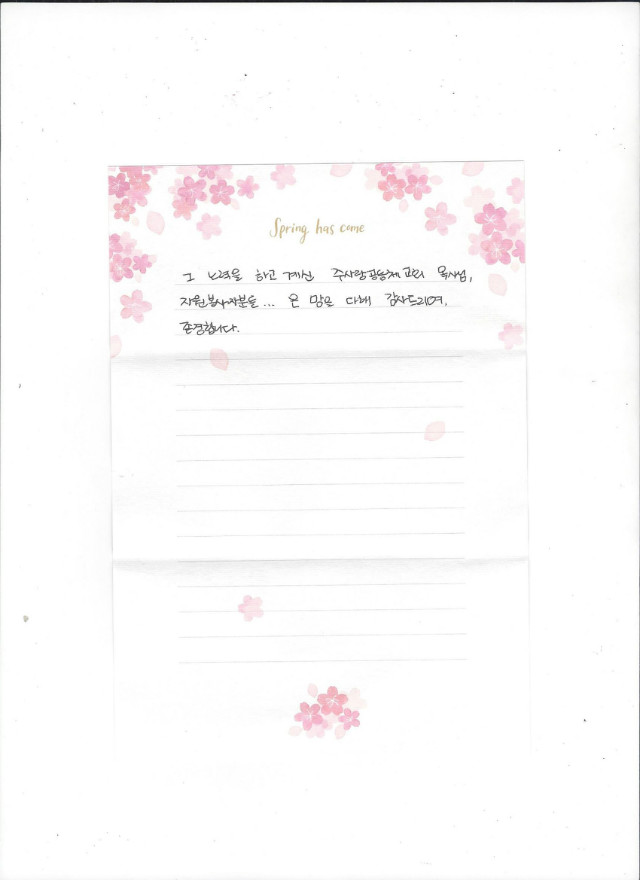 Spring has come
그 노력을 하고 계신 주사랑공동체 교회 목사님,
자원봉사자분들... 온 맘을 다해 감사드리며,
존경합니다.